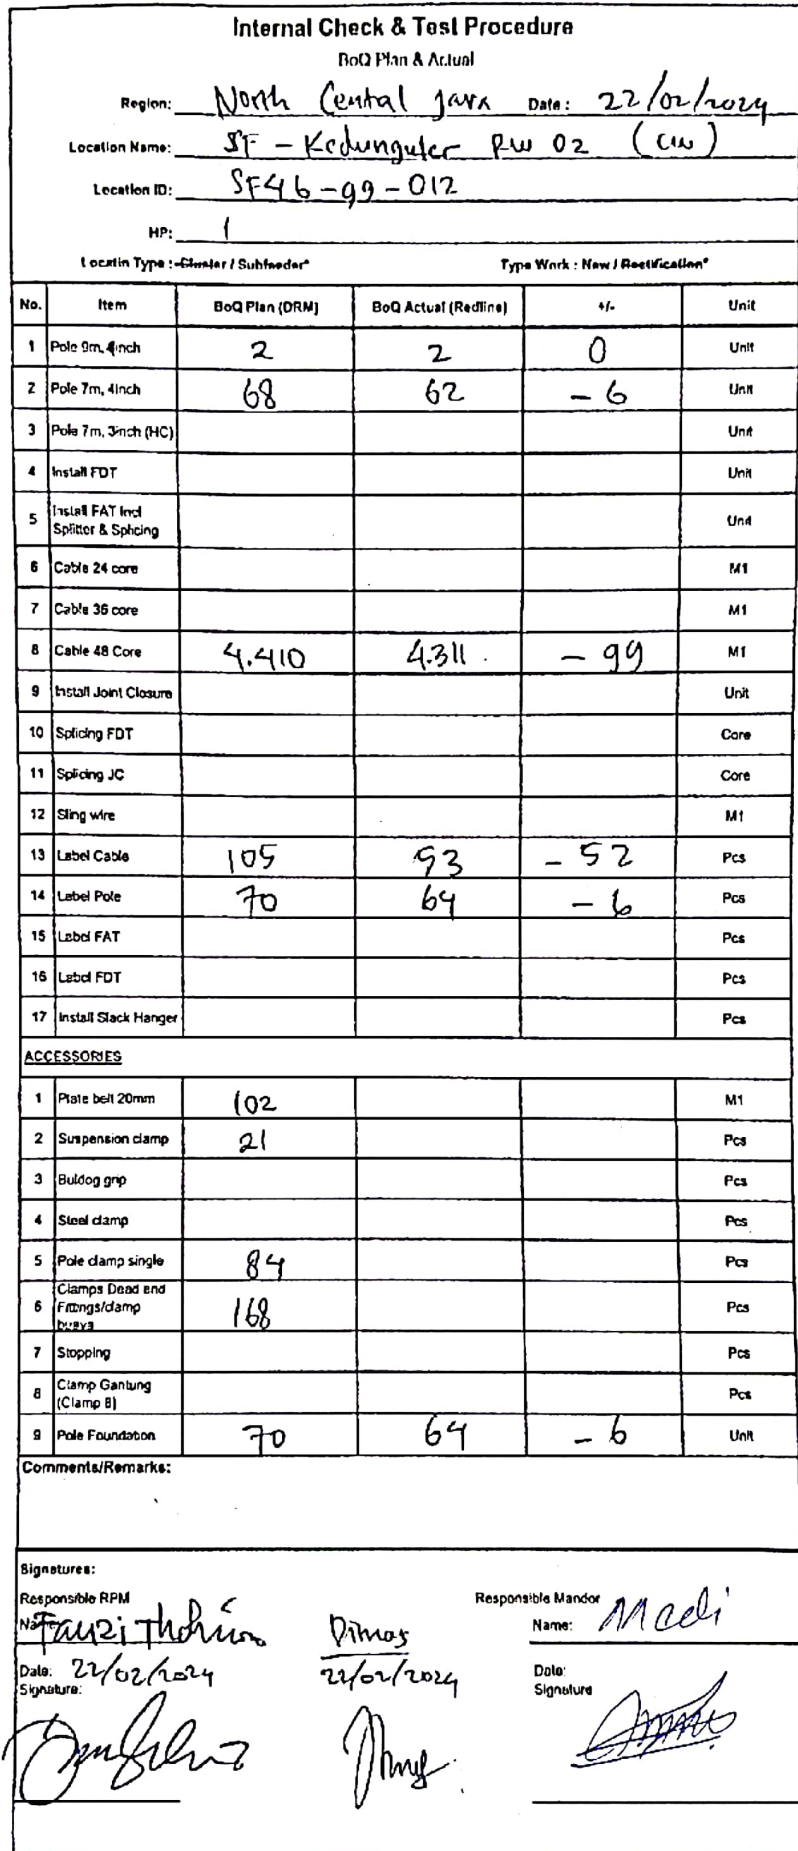 Internal Check & Test Procedure
BoQ Plan & Actual
Region: North Central Java Date: 22/02/2024
Location Name: SF - Kedunguter RW 02 (CW)
Location ID: SF46-99-012
HP: 1
Locatin Type : Cluster / Subfeeder* Type Work : New / Rectification*
No. Item BoQ Plan (DRM) BoQ Actual (Redline) +/- Unit
1 Pole 9m, 4inch 2 2 0 Unit
2 Pole 7m, 4inch 68 62 - 6 Unit
3 Pole 7m, 3inch (HC) Unit
4 Install FDT Unit
5 Install FAT Incl Splitter & Splicing Unit
6 Cable 24 core M1
7 Cable 36 core M1
8 Cable 48 Core 4.410 4.311 - 99 M1
9 Install Joint Closure Unit
10 Splicing FDT Core
11 Splicing JC Core
12 Sling wire M1
13 Label Cable 105 53 - 52 Pcs
14 Label Pole 70 64 - 6 Pcs
15 Label FAT Pcs
16 Label FDT Pcs
17 Install Slack Hanger Pcs
ACCESSORIES
1 Plate belt 20mm 102 M1
2 Suspension clamp 21 Pcs
3 Buldog grip Pcs
4 Steel clamp Pcs
5 Pole clamp single 84 Pcs
6 Clamps Dead end Fittings/clamp buaya 168 Pcs
7 Stopping Pcs
8 Clamp Gantung (Clamp B) Pcs
9 Pole Foundation 70 64 - 6 Unit
Comments/Remarks:
Signatures:
Responsible RPM Responsible Mandor
Name: Fauzi Dimas Name:
Date: 22/02/2024 22/02/2024 Date:
Signature: Signature